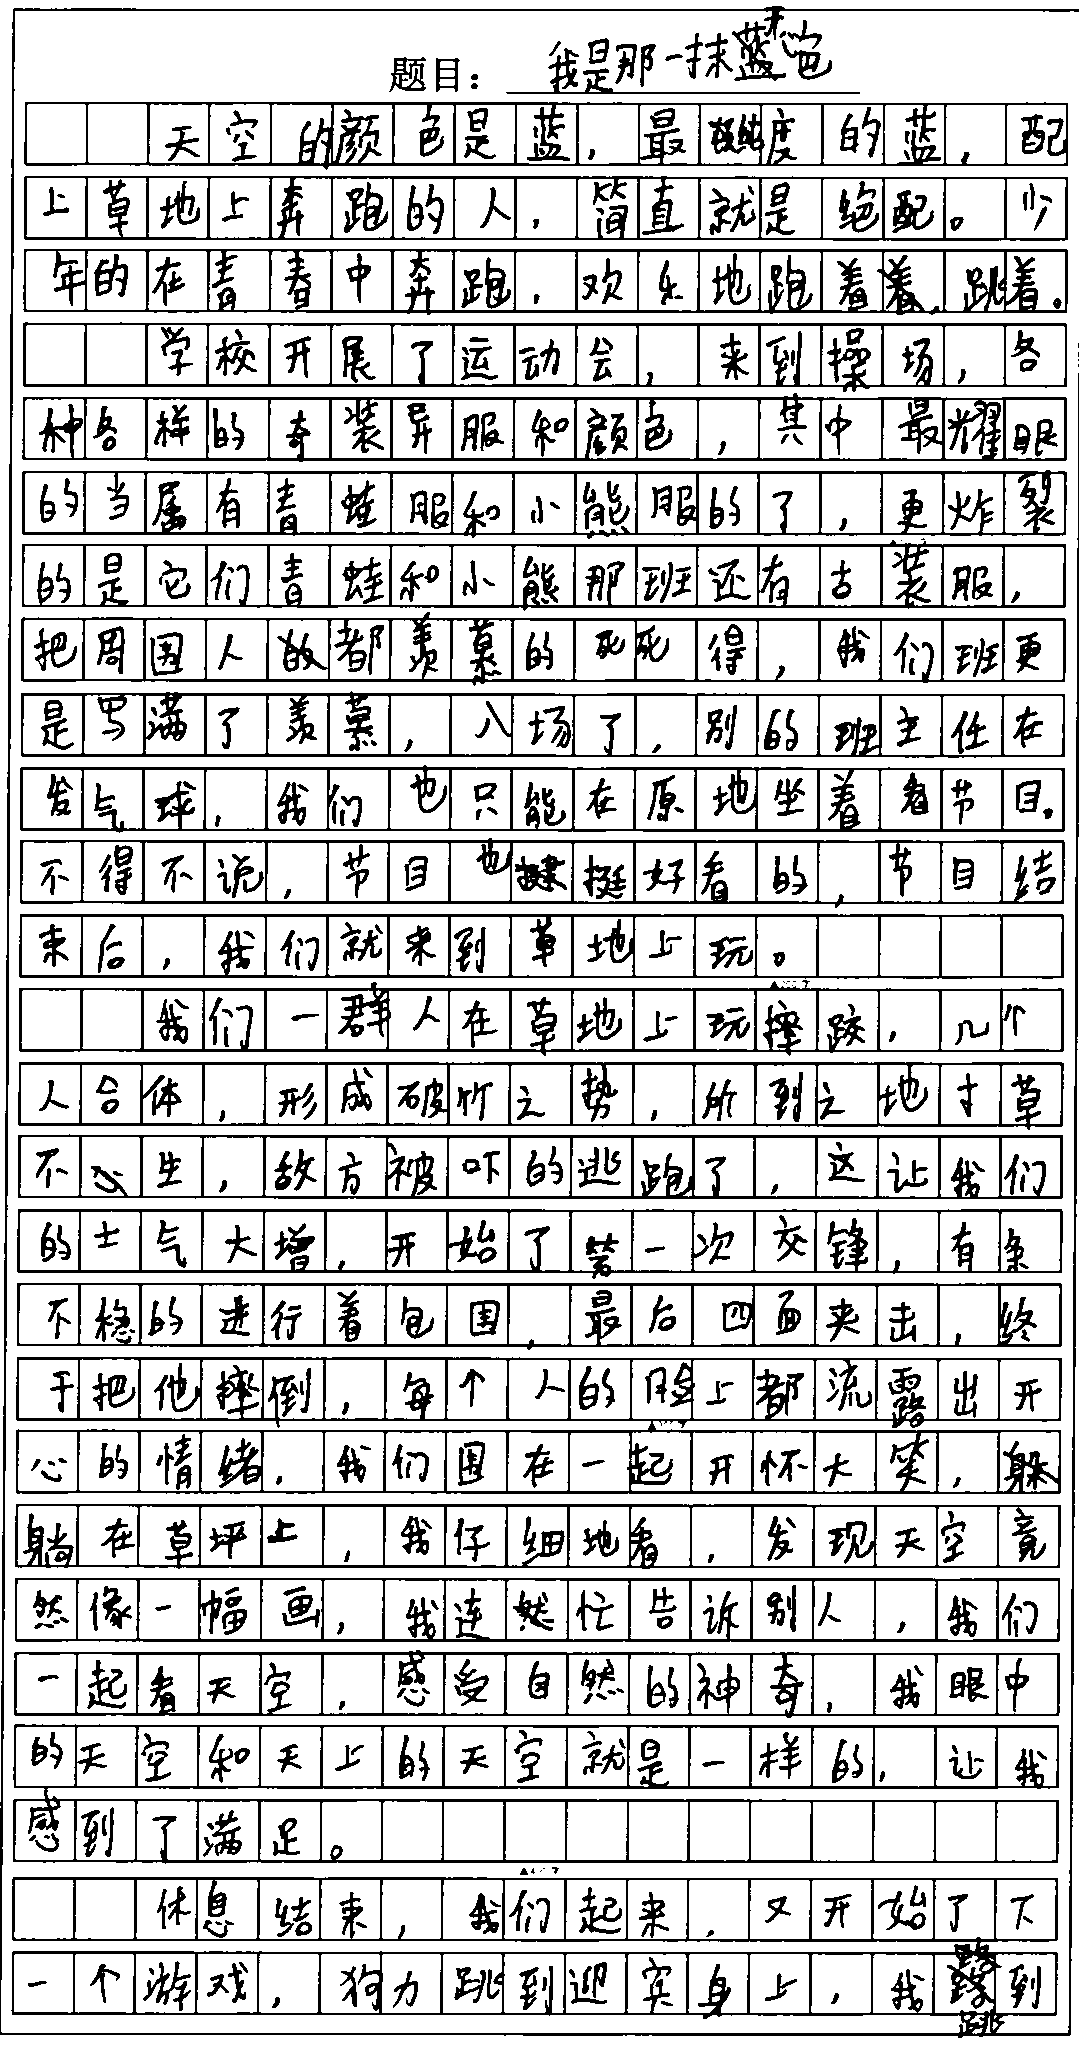 题目：我是那一抹蓝色
天空的颜色是蓝，最纯度的蓝，配
上草地上奔跑的人，简直就是绝配。少
年的在青春中奔跑，欢乐地跑着着，跳着。
学校开展了运动会，来到操场，各
种各样的奇装异服和颜色，其中最耀眼
的当属有青蛙服和小熊服的了，更炸裂
的是它们青蛙和小熊那班还有古装服，
把周围人都羡慕的死死得，我们班更
是写满了羡慕，入场了，别的班主任在
发气球，我们也只能在原地坐着看节目。
不得不说，节目也挺好看的，节目结
束后，我们就来到草地上玩。
我们一群人在草地上玩摔跤，几个
人合体，形成破竹之势，所到之地寸草
不生，敌方被吓的逃跑了，这让我们
的士气大增，开始了第一次交锋，有条
不稳的进行着包围，最后四面夹击，终
于把他摔倒，每个人的脸上都流露出开
心的情绪，我们围在一起开怀大笑，躲
躺在草坪上，我仔细地看，发现天空竟
然像一幅画，我连忙告诉别人，我们
一起看天空，感受自然的神奇，我眼中
的天空和天上的天空就是一样的，让我
感到了满足。
休息结束，我们起来，又开始了下
一个游戏，狗力跳到迎宾身上，我跳到